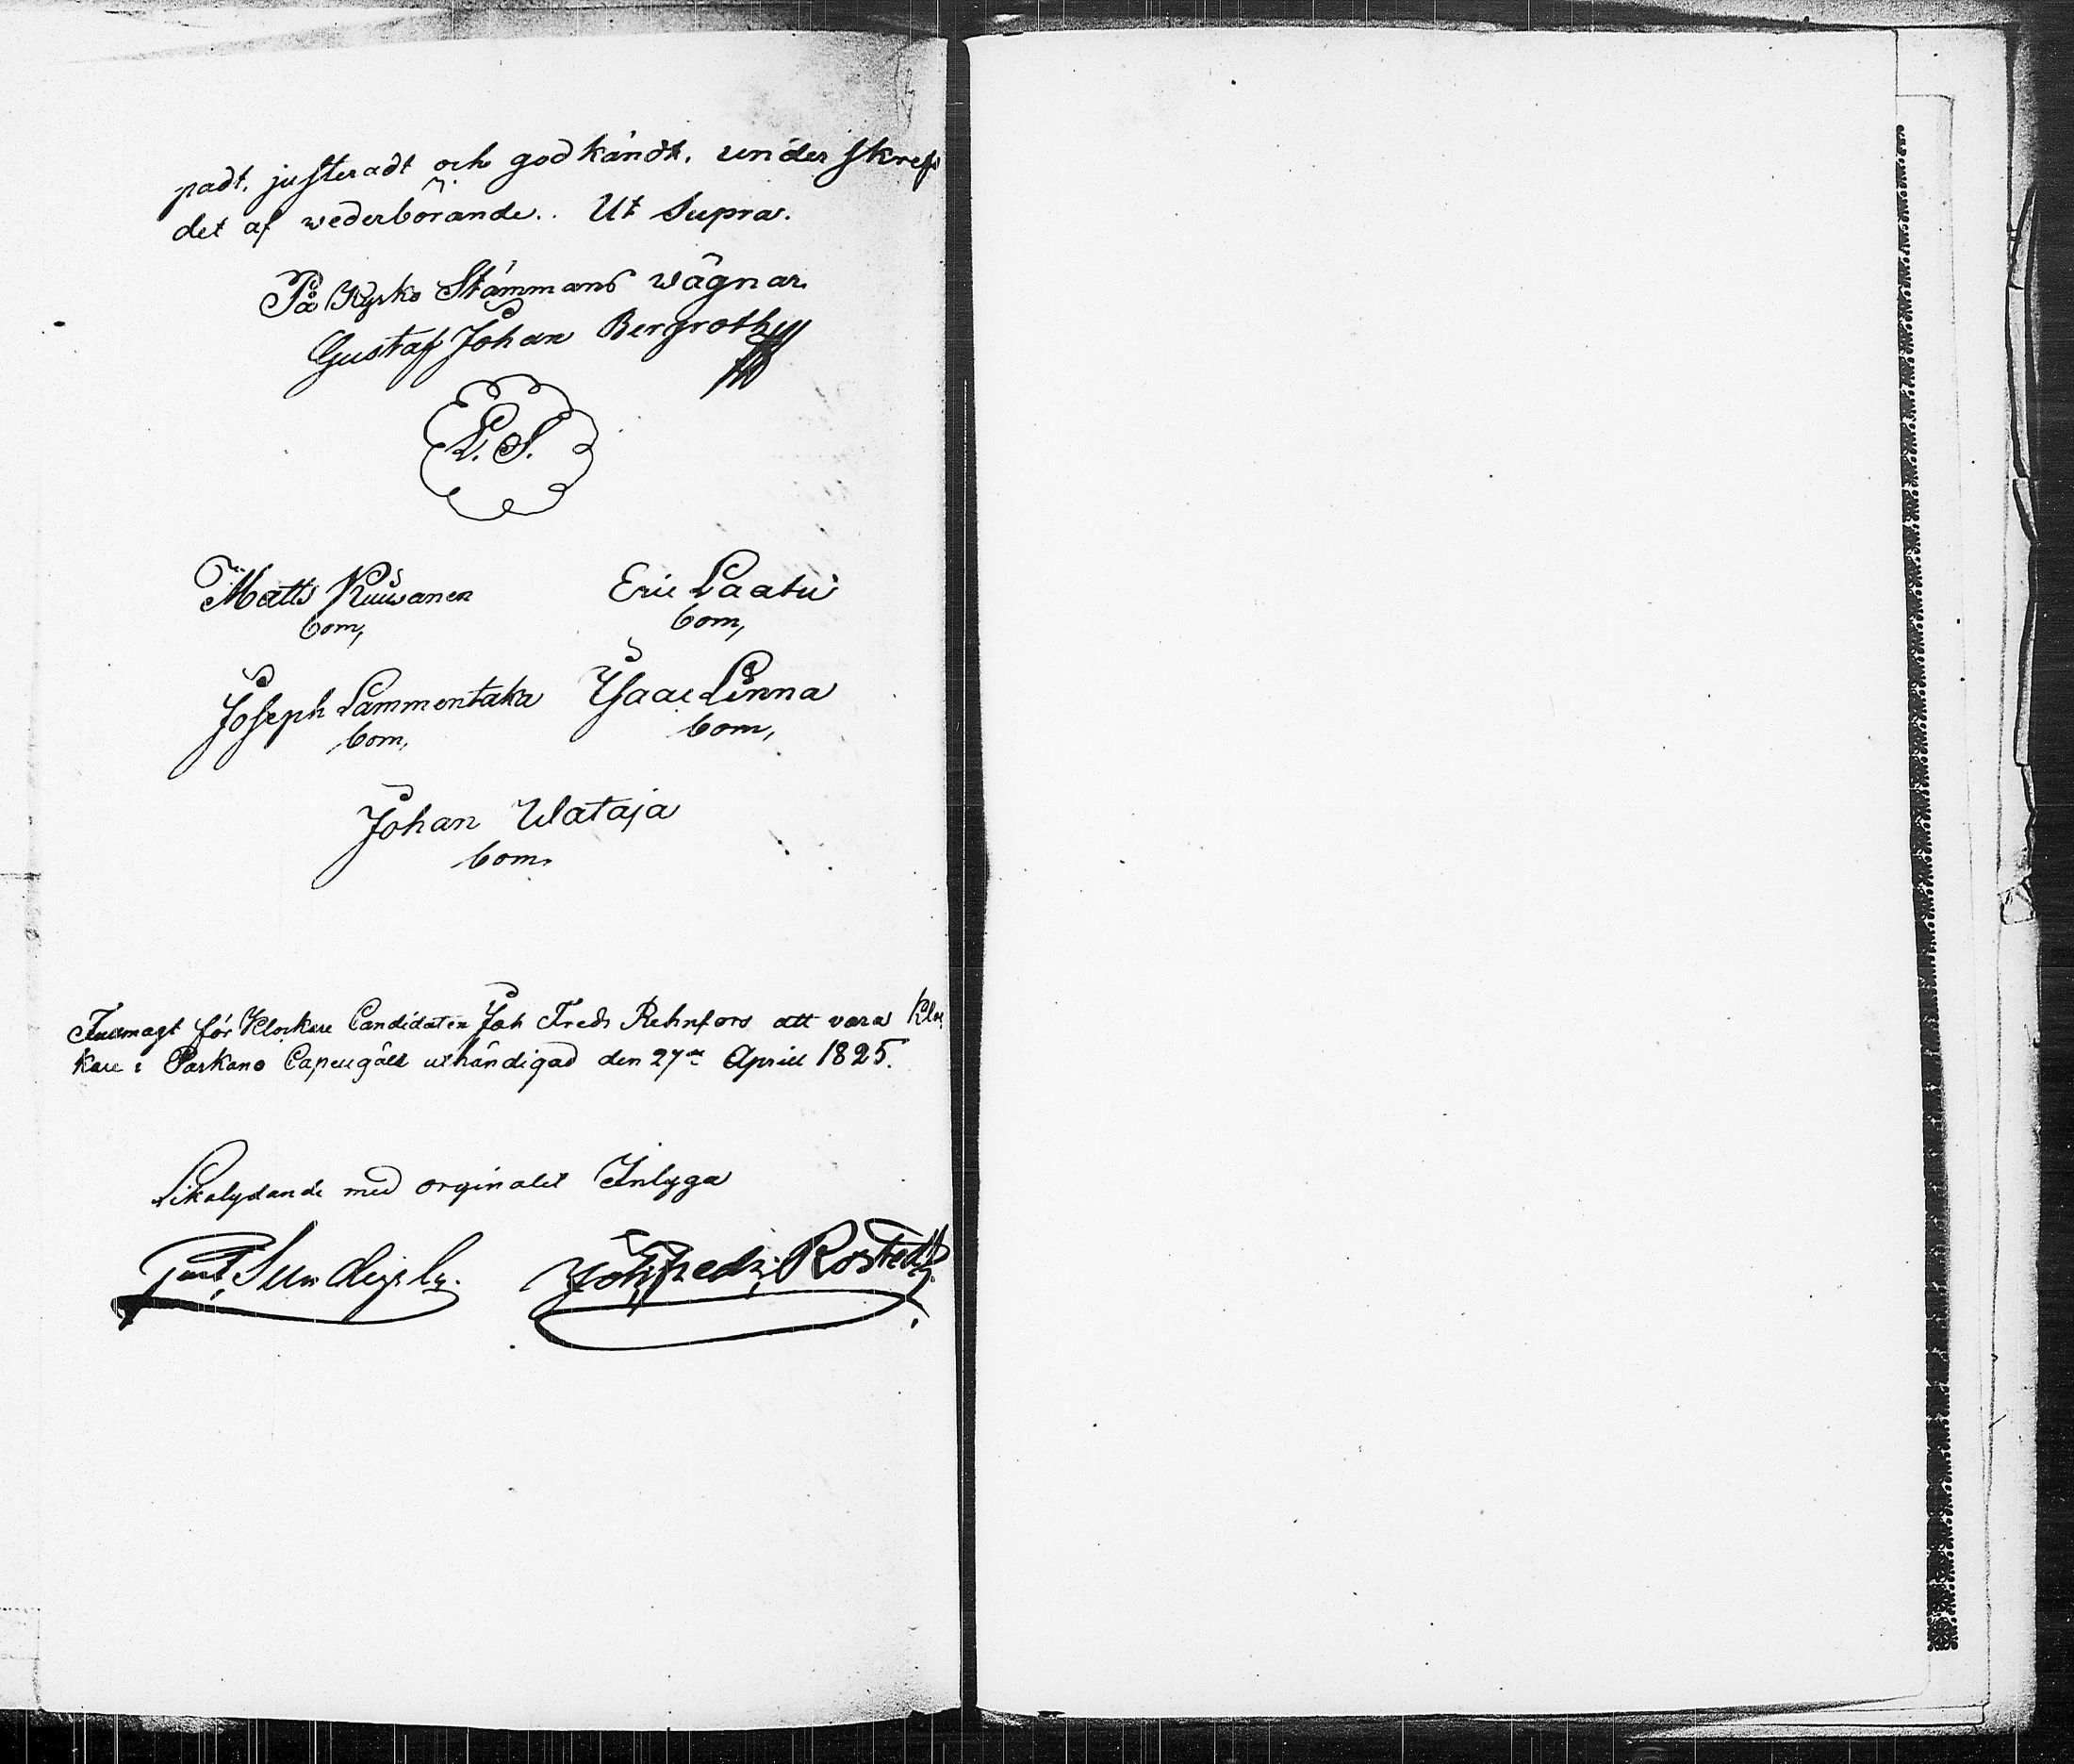 padt, justeradt och godkändt, underskref
det af wederbörande.. Ut Supra.
På Kyrko Stämmans wägnar
Gustaf Johan Bergroth
L. S.
Matts Kuiwanen
bom,
Eric Laatu
bom,
Joseph Lammentaka
bom,
Ysaac Linna
bom,
Johan Wataja
bom.
för Klockare Candidaten Joh Fredr Rehnfors att vara Kloc
kare i Parkano Capellgäld uthändigad den 27de Aprill 1825.
Likalydande med orginalet Intyga
Joh Fredr Rostedt